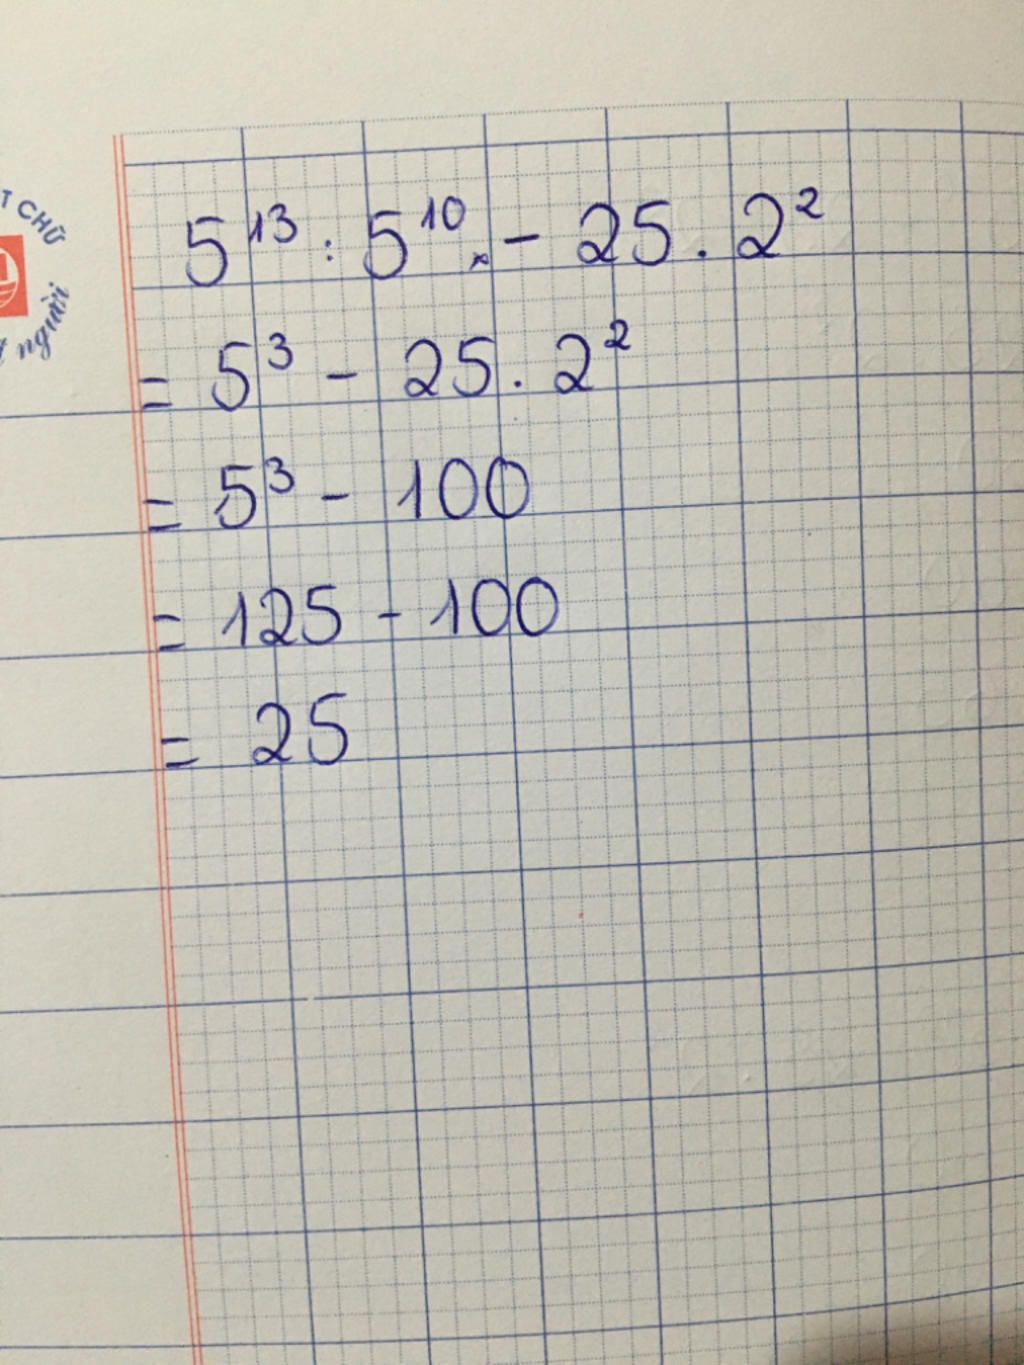 T CHỮ
người
5¹³ : 5¹⁰ - 25 . 2²
= 5³ - 25 . 2²
= 5³ - 100
= 125 - 100
= 25